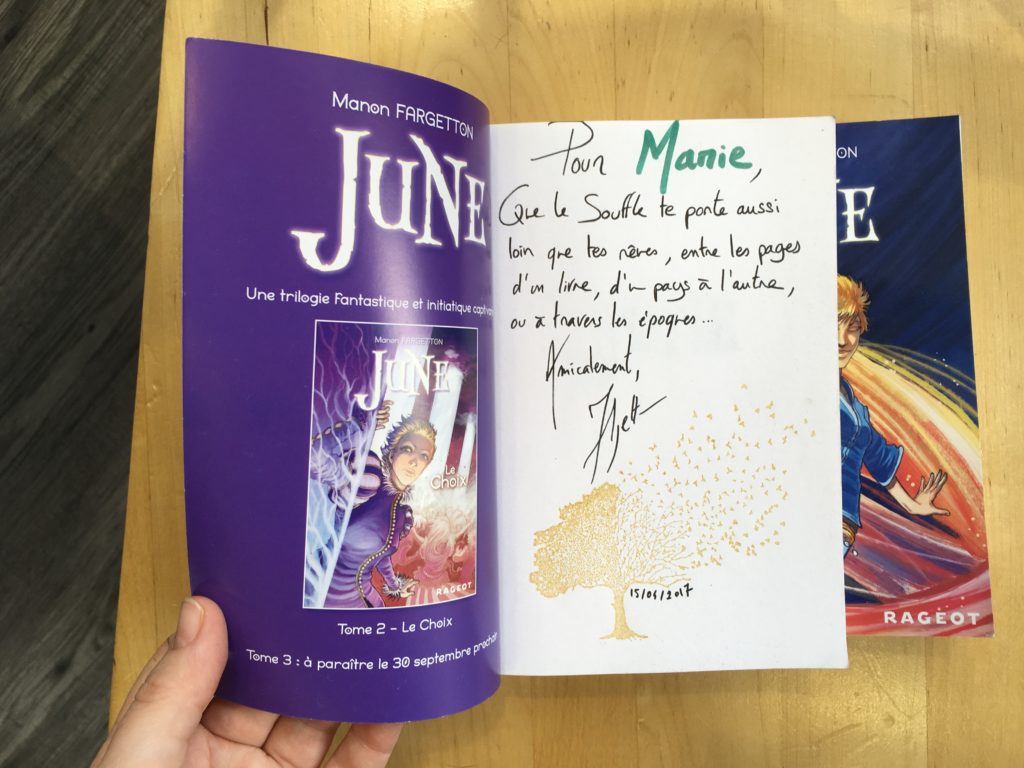 Manon FARGETTON
JUNE
Une trilogie fantastique et initiatique
Manon FARGETTON
JUNE
Le
Choix
RAGEOT
Tome 2 – Le Choix
Tome 3 : à paraître le 30 septembre prochain
Pour Manie,
Que le Souffle te porte aussi
loin que tes rêves, entre les pages
d'un livre, d'un pays à l'autre,
ou à travers les époques...
Amicalement,
15/04/2017
ON
NE
RAGEOT